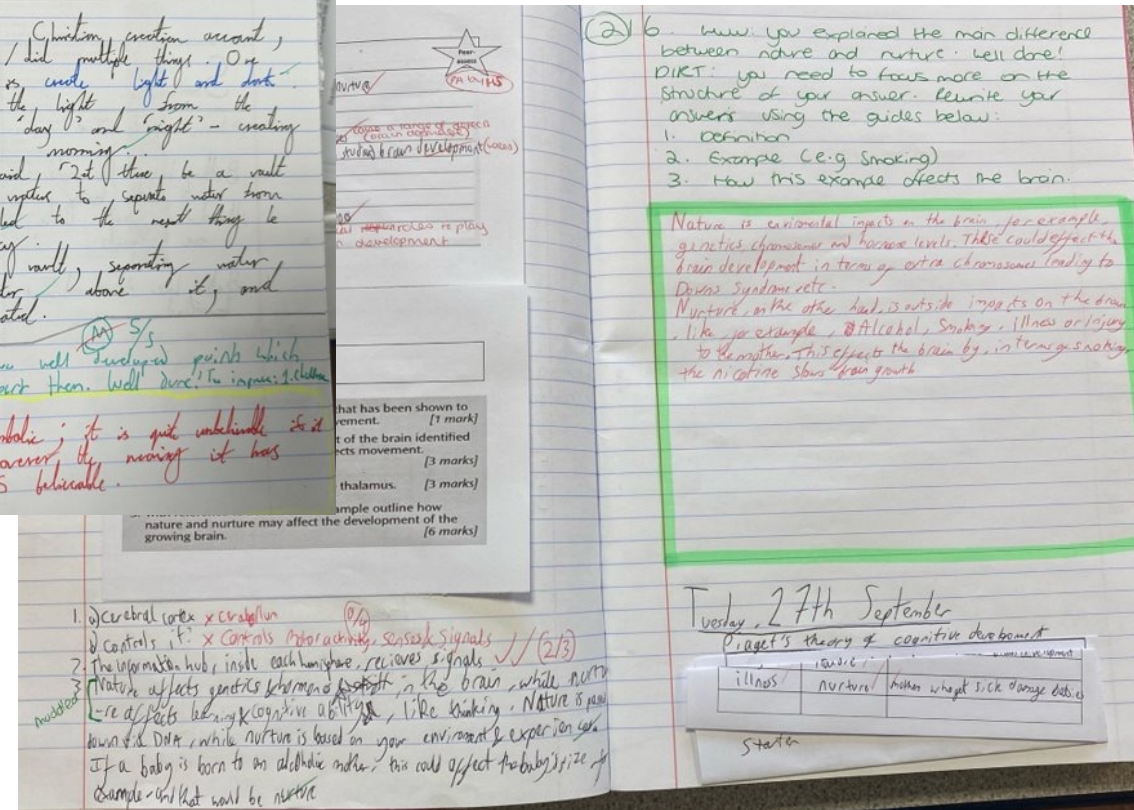 Christian, creation account,
/ did multiple things. One
is create light and dark.
the light, from the
'day' and 'night' - creating
morning..
said, "Let there be a vault
to separate water from
led to the next thing he
vault, separating water
above it, and
(M) 5/5
well developed points which
them. Well done!
it is quite unbelievable if it
the meaning it has
believable.
Peer-
assess
nurture
cause a range of
studies brain development
roles to play
development
that has been shown to
vement. [1 mark]
t of the brain identified
cts movement.
[3 marks]
thalamus. [3 marks]
ample outline how
nature and nurture may affect the development of the
growing brain. [6 marks]
1. a) Cerebral cortex x Cerebellum
b) controls 'it' x Controls motor activity, senses & signals (2/3)
2. The information hub, inside each hemisphere, recieves signals
3. Nature affects genetics & hormones in the brain, while nurtu
muddled
-re affects learning & cognitive ability, like thinking. Nature is
down via DNA, while nurture is based on your enviroment & experiences.
If a baby is born to an alcoholic mother, this could affect the baby's size, for
example - and that would be nurture
(2)/6. www: you explained the main difference
between nature and nurture. Well done!
DIRT: you need to focus more on the
structure of your answer. Rewrite your
answers using the guides below:
1. Definition
2. Example (e.g smoking)
3. How this example affects the brain.
Nature is enviromental impacts on the brain, for example,
genetics, chromosomes and hormone levels. These could effect the
brain development in terms of extra chromosomes leading to
Downs Syndrome etc.
Nurture, on the other hand, is outside impacts on the brain
like, for example, Alcohol, Smoking, illness or injury
to the mother. This effects the brain by, in terms of smoking,
the nicotine slows brain growth
Tuesday, 27th September
Piaget's theory of cognitive development
illness nurture mother who get sick damage babies
Starter